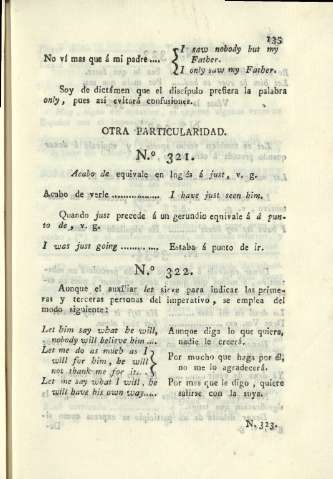 135
No ví mas que á mi padre....
{I saw nobody but my
Father.
I only saw my Father.
Soy de dictámen que el discípulo prefiera la palabra
only, pues así evitará confusiones.
OTRA PARTICULARIDAD.
N.º 321.
Acabo de equivale en Inglés á just, v. g.
Acabo de verle................. I have just seen him.
Quando just precede á un gerundio equivale á á pun-
to de, v. g.
I was just going............. Estaba á punto de ir.
N.º 322.
Aunque el auxîliar let sirve para indicar las prime-
ras y terceras personas del imperativo, se emplea del
modo siguiente:
Let him say what he will, Aunque diga lo que quiera,
nobody will believe him.... nadie le creerá.
Let me do as much as I
will for him, he will
not thank me for it...}
Por mucho que haga por él,
no me lo agradecerá.
Let me say what I will, he Por mas que le digo, quiere
will have his own way..... salirse con la suya.
N. 323.